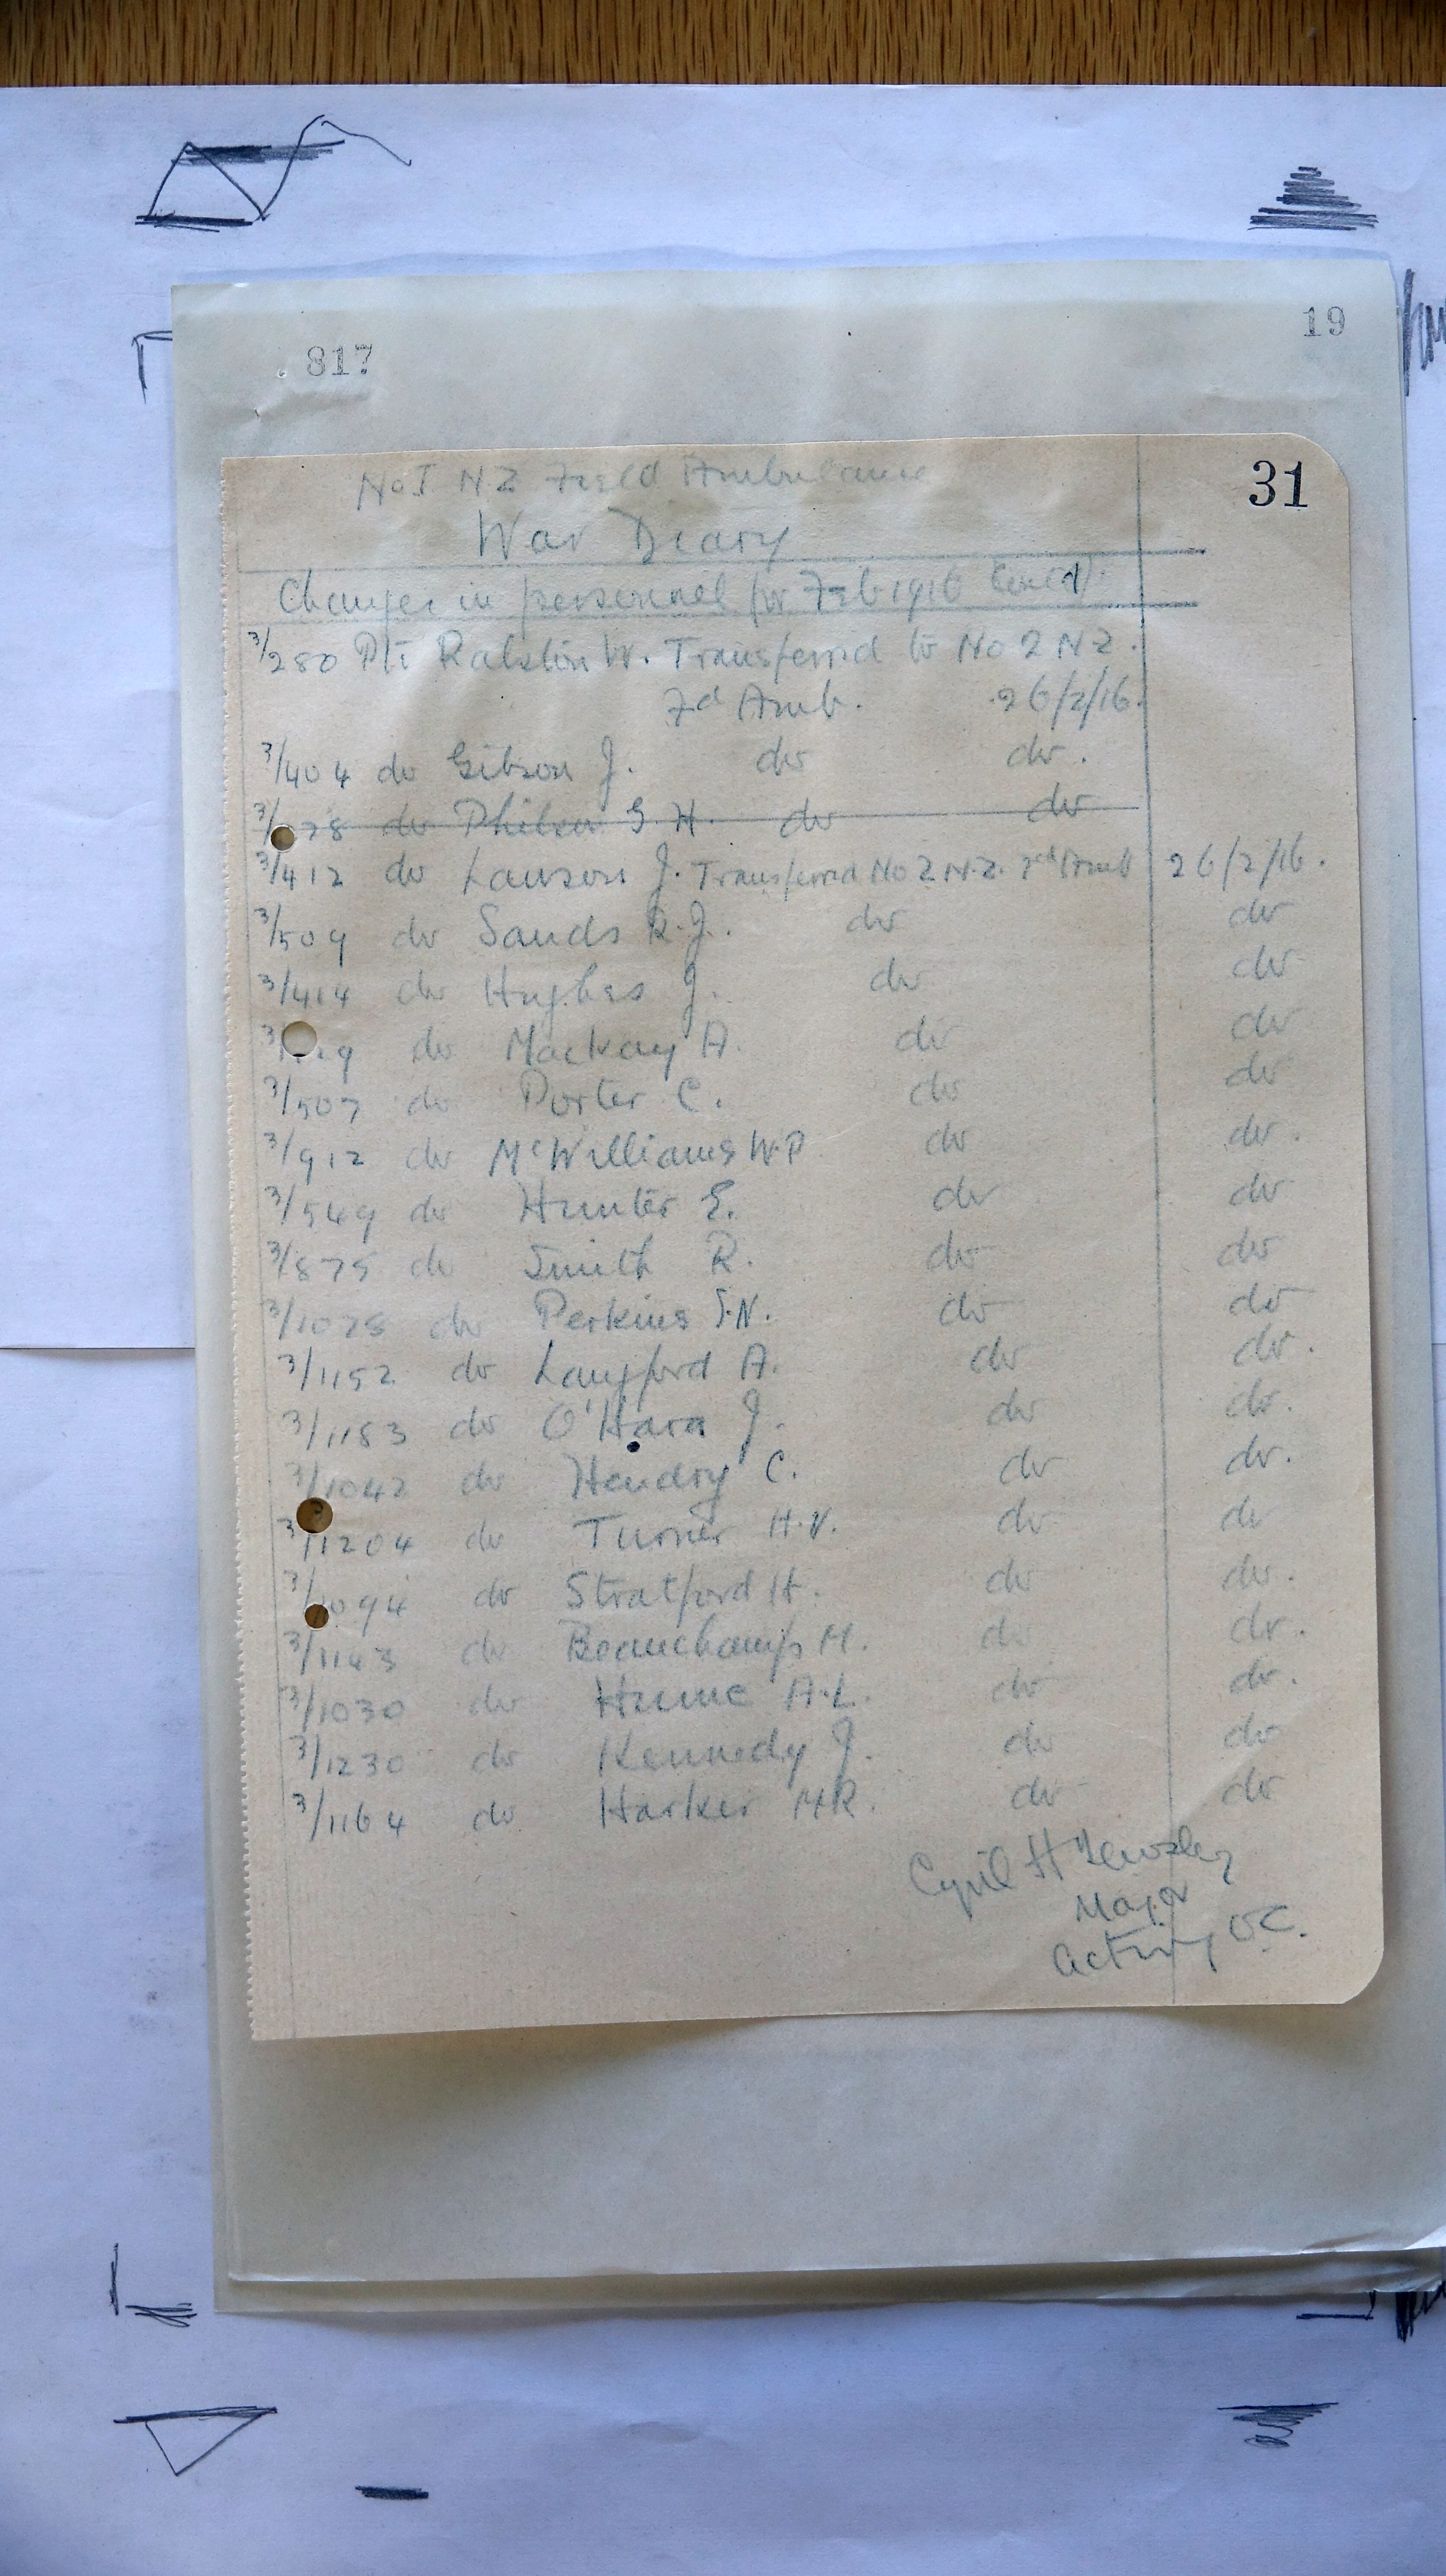 817
19
31
No I NZ Field Ambulance
War Diary
Changes in personnel for Feb 1916 Cont'd.
3/280 Pte Ralston W. Transferred to No 2 NZ.
Fd Amb. 26/2/16.
3/404 do Gibson J. do do.
do G H. do do
3/412 do Lawson J. Transferred No 2 N.Z. Fd Amb 26/2/16.
3/509 do Sands R.J. do do
3/414 do Hughes J. do do
do Mackay A. do do
3/507 do Porter C. do do
3/912 do McWilliams W.P. do do.
3/549 do Hunter E. do do
3/875 do Smith R. do do
do Perkins do do
3/1152 do Langford A. do do.
3/1183 do O'Hara J. do do.
3/1042 do Hendry C. do do.
3/1204 do Turner H.V. do do
do Stratford H. do do.
3/1143 do Beauchamp H. do do.
3/1030 do Hume A.L. do do.
3/1230 do Kennedy J. do do
3/1164 do Harker H R. do do
Cyril H
Major
Acting O.C.